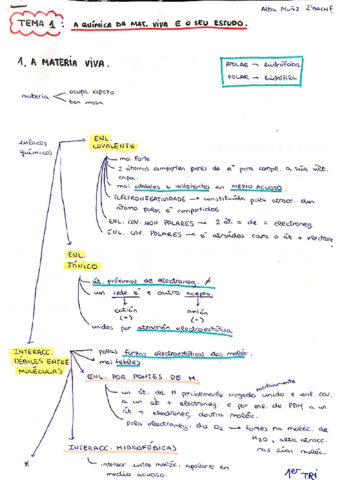 Alba Muñiz
TEMA 1: A QUÍMICA DA MAT. VIVA E O SEU ESTUDO.
1. A MATERIA VIVA.
APOLAR → hidrófoba
POLAR → hidrófila
materia
ocupa espazo
ten masa
enlaces químicos
ENL. COVALENTE
moi forte
2 átomos comparten pares de e⁻ para compl. a súa últ.
capa.
moi estables e resistentes en MEDIO ACUOSO.
ELECTRONEGATIVIDADE → constituída pola atracc. dun
átomo polos e⁻ compartidos
ENL. COV. NON POLARES → 2 át. = de = electroneg.
ENL. COV. POLARES → e⁻ atraídos cara o át +
ENL. IÓNICO
át. próximos de electroneg. ≠
un cede e⁻ e outro acepta
catión (+)
anión (-)
unidos por atracción electrostática
INTERACC. DÉBILES ENTRE MOLÉCULAS
polas forzas electrostáticas das moléc.
moi febles
ENL. POR PONTES DE H.
un át. de H parcialmente cargado positivamente unido x enl. cov.
a un át + electroneg. e por enl. de PDH a un
át + electroneg. doutra moléc.
pola electroneg. do O₂ → fortes na moléc. de
H2O, alta atracc.
nas súas moléc.
INTERACC. HIDROFÓBICAS
interacc. entre moléc. apolares en
medio acuoso.
*
1er TRI